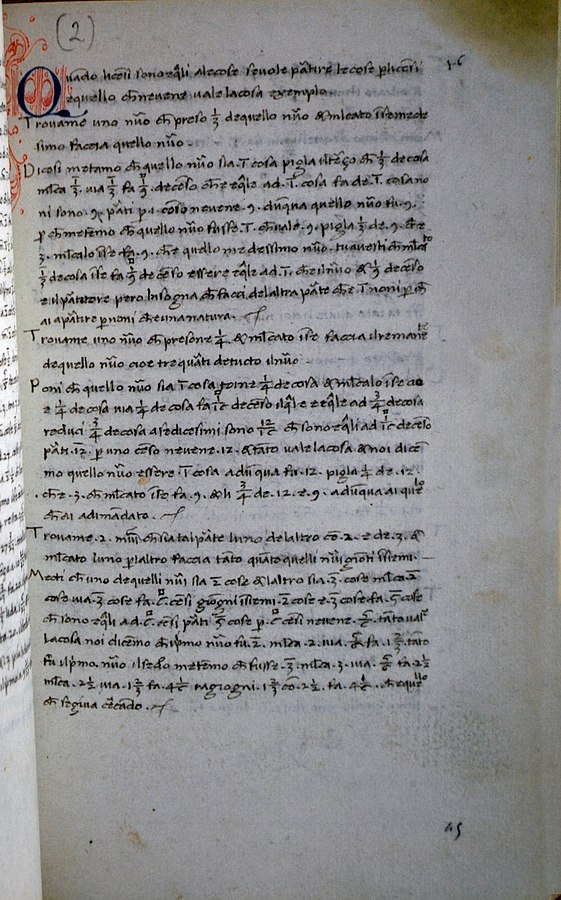 (2)
Quādo li cēsi sono eq̄li ale cose se vole ꝑtire le cose ꝑ li cēsi
e quello ch̄ ne vene vale la cosa exemplo
46
Trovame uno nūo ch̄ preso 1/3 de quello nūo & mlcato ī se mede
simo faccia quello nūo.
Dicosi metamo ch̄ quello nūo sia .1̄. cosa pigla il terço ch̄ 1/3 de cosa
mlca 1/3 via 1/3 fa 1/9 de cēso ch̄ e eq̄le ad .1̄. cosa
ni sono .9. .9. dunqua quello nūo fu .9.
ch̄ metemo ch̄ quello nūo fusse .1̄. ch̄ vale .9. pigla 1/3 de .9. ch̄ e
.3. mlcalo ī se fa .9. ch̄ e quello medessimo nūo. tu avesti ch̄ mlcato
1/3 de cosa ī se fa 1/9 de cēso essere eq̄le ad .1̄. & 1/9 de cēso
e il partitore pero bisogna ch̄ facci de laltra parte ch̄ e .1̄. noni
a partire ꝑ noni ch̄ e una natura.
Trovame uno nūo ch̄ presone 1/4 & mlcato ī se faccia il remanēte
de quello nūo cioe tre quarti de tucto il nūo
Poni ch̄ quello nūo sia .1̄. cosa toine 1/4 de cosa & mlcalo ī se
e 1/4 de cosa via 1/4 de cosa fa 1/16 de cēso il q̄le e eq̄le ad 3/4 de cosa
reduci 3/4 de cosa a sedicesimi sono 12/16 ch̄ sono eq̄li ad 1/16 de cēso
parti .12. ꝑ uno cēso ne vene .12. & tāto vale la cosa & noi dicē
mo quello nūo essere .1̄. cosa adūqua fu .12. pigla 1/4 de .12.
.ch̄ e .3. ch̄ mlcato ī se fa .9. & li 3/4 de .12. e .9. adūqua ai quello
ch̄ ai adimādato.
Trovame .2. nūi ch̄ sia tal parte luno de laltro cō .2. e de .3. &
mlcato luno ꝑ laltro faccia tāto quāto quelli nūi giōti īsiemi.
Meti ch̄ uno de quelli nūi sia .2̄. cose & laltro sia .3̄. cose mlca .2̄.
cose via .3̄. cose fa .6. cēsi giōgni īsiemi .2̄. cose e .3̄. cose fa .5̄. cose
ch̄ sono eq̄li ad .6. cēsi parti .5̄. cose ꝑ .6. cēsi ne vene .5/6. tāto vale
la cosa noi dicemo ch̄ il p̄mo nūo fu .2̄. mlca .2. via .5/6. fa .1 2/3. tāto
fu il p̄mo nūo il secōdo metemo ch̄ fusse .3̄. mlca .3. via .5/6. fa .2 1/2
mlca .2 1/2 via .1 2/3 fa .4 1/6 .1 2/3 cō .2 1/2 fa .4 1/6. ch̄ e quello
ch̄ cercādo.
45